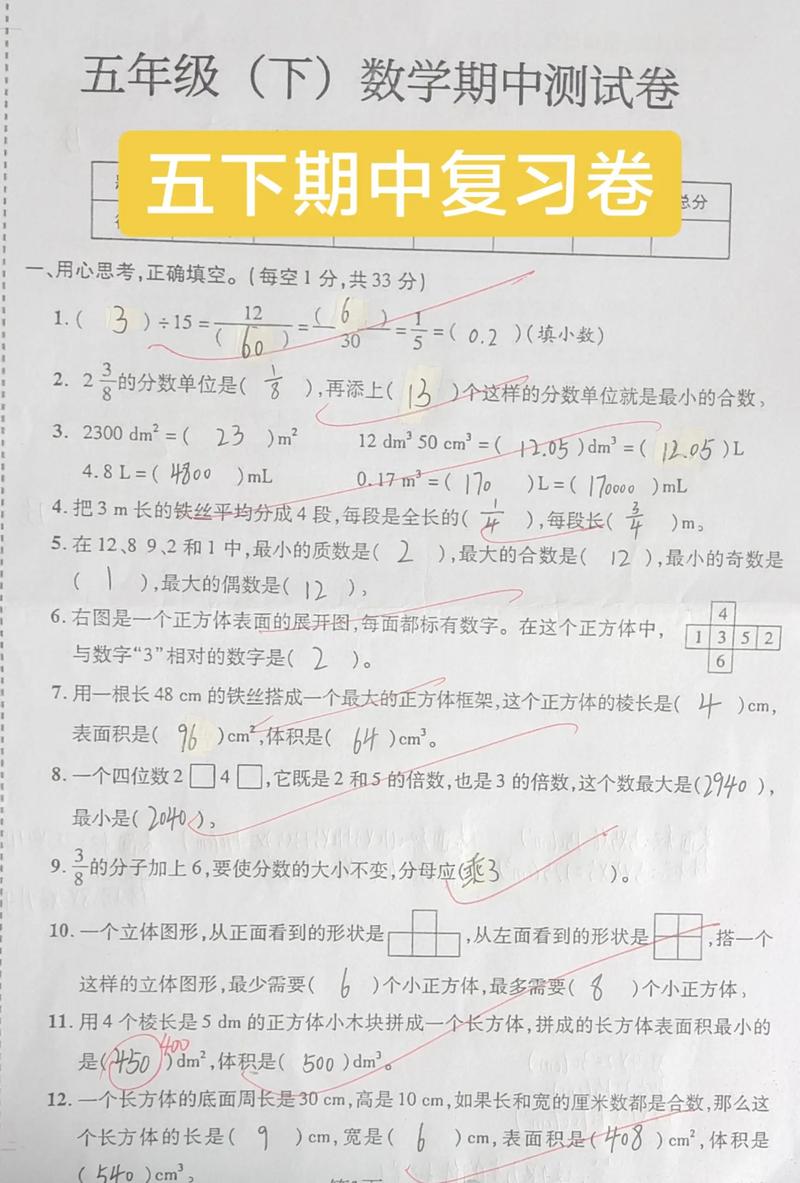 五年级（下）数学期中测试卷
五下期中复习卷
总分
一、用心思考，正确填空。（每空1分，共33分）
1. ( 3 )÷15 = 12/( 60 ) = ( 6 )/30 = 1/5 = ( 0.2 )(填小数)
2. 2 3/8 的分数单位是( 1/8 )，再添上( 13 )个这样的分数单位就是最小的合数。
3. 2300 dm² = ( 23 )m² 12 dm³ 50 cm³ = ( 12.05 )dm³ = ( 12.05 )L
4.8 L = ( 4800 )mL 0.17 m³ = ( 170 )L = ( 170000 )mL
4. 把3 m长的铁丝平均分成4段，每段是全长的( 1/4 )，每段长( 3/4 )m。
5. 在12、8 9、2和1中，最小的质数是( 2 )，最大的合数是( 12 )，最小的奇数是
( 1 )，最大的偶数是( 12 )。
6. 右图是一个正方体表面的展开图，每面都标有数字。在这个正方体中，
与数字“3”相对的数字是( 2 )。
4
1 3 5 2
6
7. 用一根长48 cm的铁丝搭成一个最大的正方体框架，这个正方体的棱长是( 4 )cm，
表面积是( 96 )cm²，体积是( 64 )cm³。
8. 一个四位数2□4□，它既是2和5的倍数，也是3的倍数，这个数最大是(2940 )，
最小是( 2040 )。
9. 3/8 的分子加上6，要使分数的大小不变，分母应(乘3 )。
10. 一个立体图形，从正面看到的形状是，从左面看到的形状是，搭一个
这样的立体图形，最少需要( 6 )个小正方体，最多需要( 8 )个小正方体。
11. 用4个棱长是5 dm的正方体小木块拼成一个长方体，拼成的长方体表面积最小的
是( 450 )400 dm²，体积是( 500 )dm³。
12. 一个长方体的底面周长是30 cm，高是10 cm，如果长和宽的厘米数都是合数，那么这
个长方体的长是( 9 )cm，宽是( 6 )cm，表面积是( 408 )cm²，体积是
( 540 )cm³。